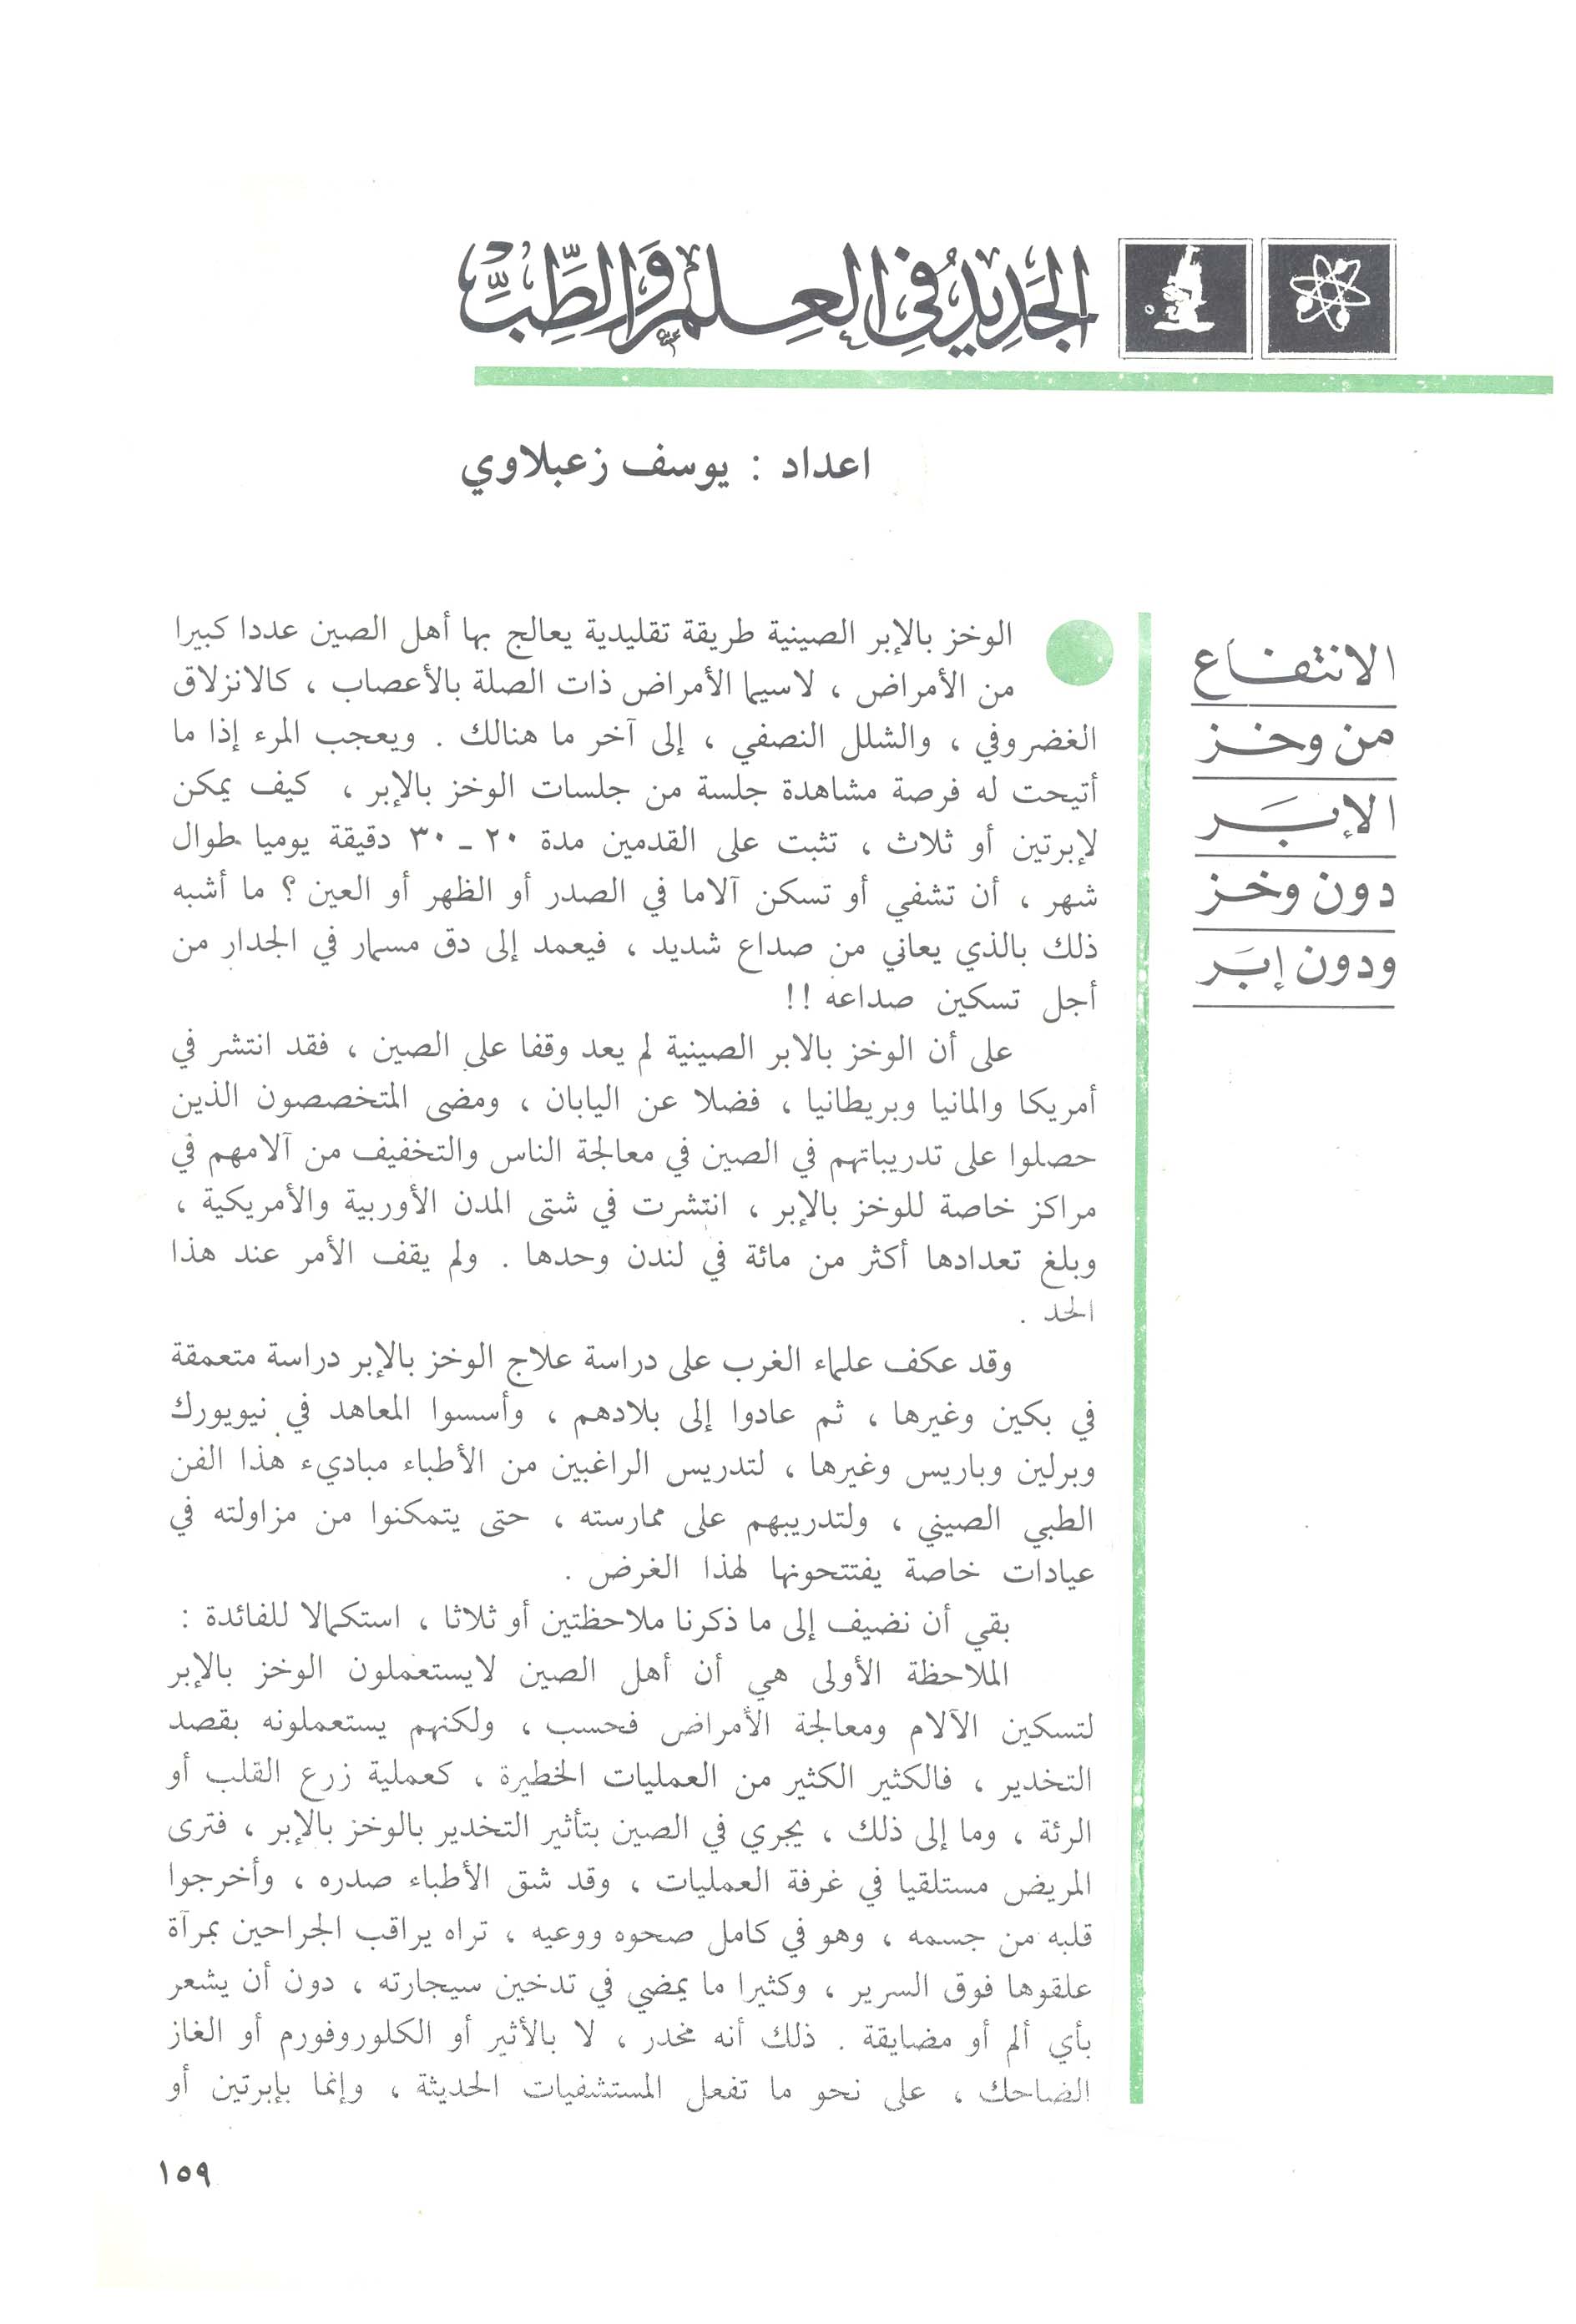 الجَدِيدُ فِي العِلمِ وَالطِّبِّ
اعداد : يوسف زعبلاوي
الانتفاع
من وخز
الإبَر
دون وخز
ودون إبَر
الوخز بالإبر الصينية طريقة تقليدية يعالج بها أهل الصين عددا كبيرا
من الأمراض ، لاسيما الأمراض ذات الصلة بالأعصاب ، كالانزلاق
الغضروفي ، والشلل النصفي ، إلى آخر ما هنالك . ويعجب المرء إذا ما
أتيحت له فرصة مشاهدة جلسة من جلسات الوخز بالإبر ، كيف يمكن
لإبرتين أو ثلاث ، تثبت على القدمين مدة ٢٠ - ٣٠ دقيقة يوميا طوال
شهر ، أن تشفي أو تسكن آلاما في الصدر أو الظهر أو العين ؟ ما أشبه
ذلك بالذي يعاني من صداع شديد ، فيعمد إلى دق مسمار في الجدار من
أجل تسكين صداعه !!
على أن الوخز بالابر الصينية لم يعد وقفا على الصين ، فقد انتشر في
أمريكا والمانيا وبريطانيا ، فضلا عن اليابان ، ومضى المتخصصون الذين
حصلوا على تدريباتهم في الصين في معالجة الناس والتخفيف من آلامهم في
مراكز خاصة للوخز بالإبر ، انتشرت في شتى المدن الأوربية والأمريكية ،
وبلغ تعدادها أكثر من مائة في لندن وحدها . ولم يقف الأمر عند هذا
الحد .
وقد عكف علماء الغرب على دراسة علاج الوخز بالإبر دراسة متعمقة
في بكين وغيرها ، ثم عادوا إلى بلادهم ، وأسسوا المعاهد في نيويورك
وبرلين وباريس وغيرها ، لتدريس الراغبين من الأطباء مباديء هذا الفن
الطبي الصيني ، ولتدريبهم على ممارسته ، حتى يتمكنوا من مزاولته في
عيادات خاصة يفتتحونها لهذا الغرض .
بقي أن نضيف إلى ما ذكرنا ملاحظتين أو ثلاثا ، استكمالا للفائدة :
الملاحظة الأولى هي أن أهل الصين لايستعملون الوخز بالإبر
لتسكين الآلام ومعالجة الأمراض فحسب ، ولكنهم يستعملونه بقصد
التخدير ، فالكثير الكثير من العمليات الخطيرة ، كعملية زرع القلب أو
الرئة ، وما إلى ذلك ، يجري في الصين بتأثير التخدير بالوخز بالإبر ، فترى
المريض مستلقيا في غرفة العمليات ، وقد شق الأطباء صدره ، وأخرجوا
قلبه من جسمه ، وهو في كامل صحوه ووعيه ، تراه يراقب الجراحين بمرآة
علقوها فوق السرير ، وكثيرا ما يمضي في تدخين سيجارته ، دون أن يشعر
بأي ألم أو مضايقة . ذلك أنه مخدر ، لا بالأثير أو الكلوروفورم أو الغاز
الضاحك ، على نحو ما تفعل المستشفيات الحديثة ، وإنما بإبرتين أو
١٥٩